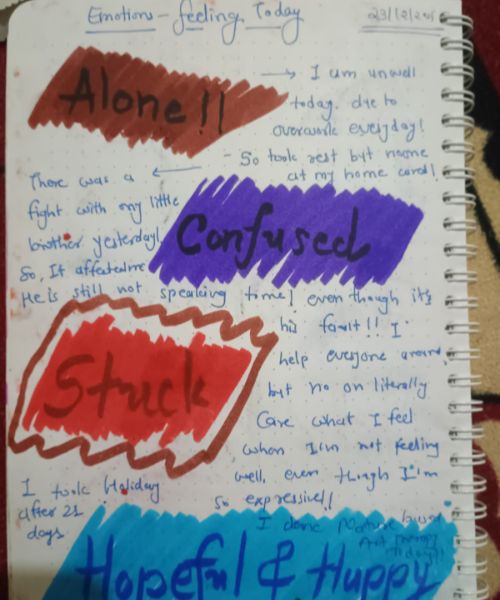 Emotions - feeling Today
23/12/2015
Alone!!
→ I am unwell
today. due to
overwork everyday!
- So took rest but noone
at my home cared!
There was a ←
fight with my little
brother yesterday!
So, It affected me
Confused
He is still not speaking to me! even though it's
his fault!! I
help everyone around,
but no on literally
Care what I feel
when I'm not feeling
well, even though I'm
so expressive!!
Stuck
I took Holiday
after 21
days
I done Nature based
Art Therapy
Hopeful & Happy